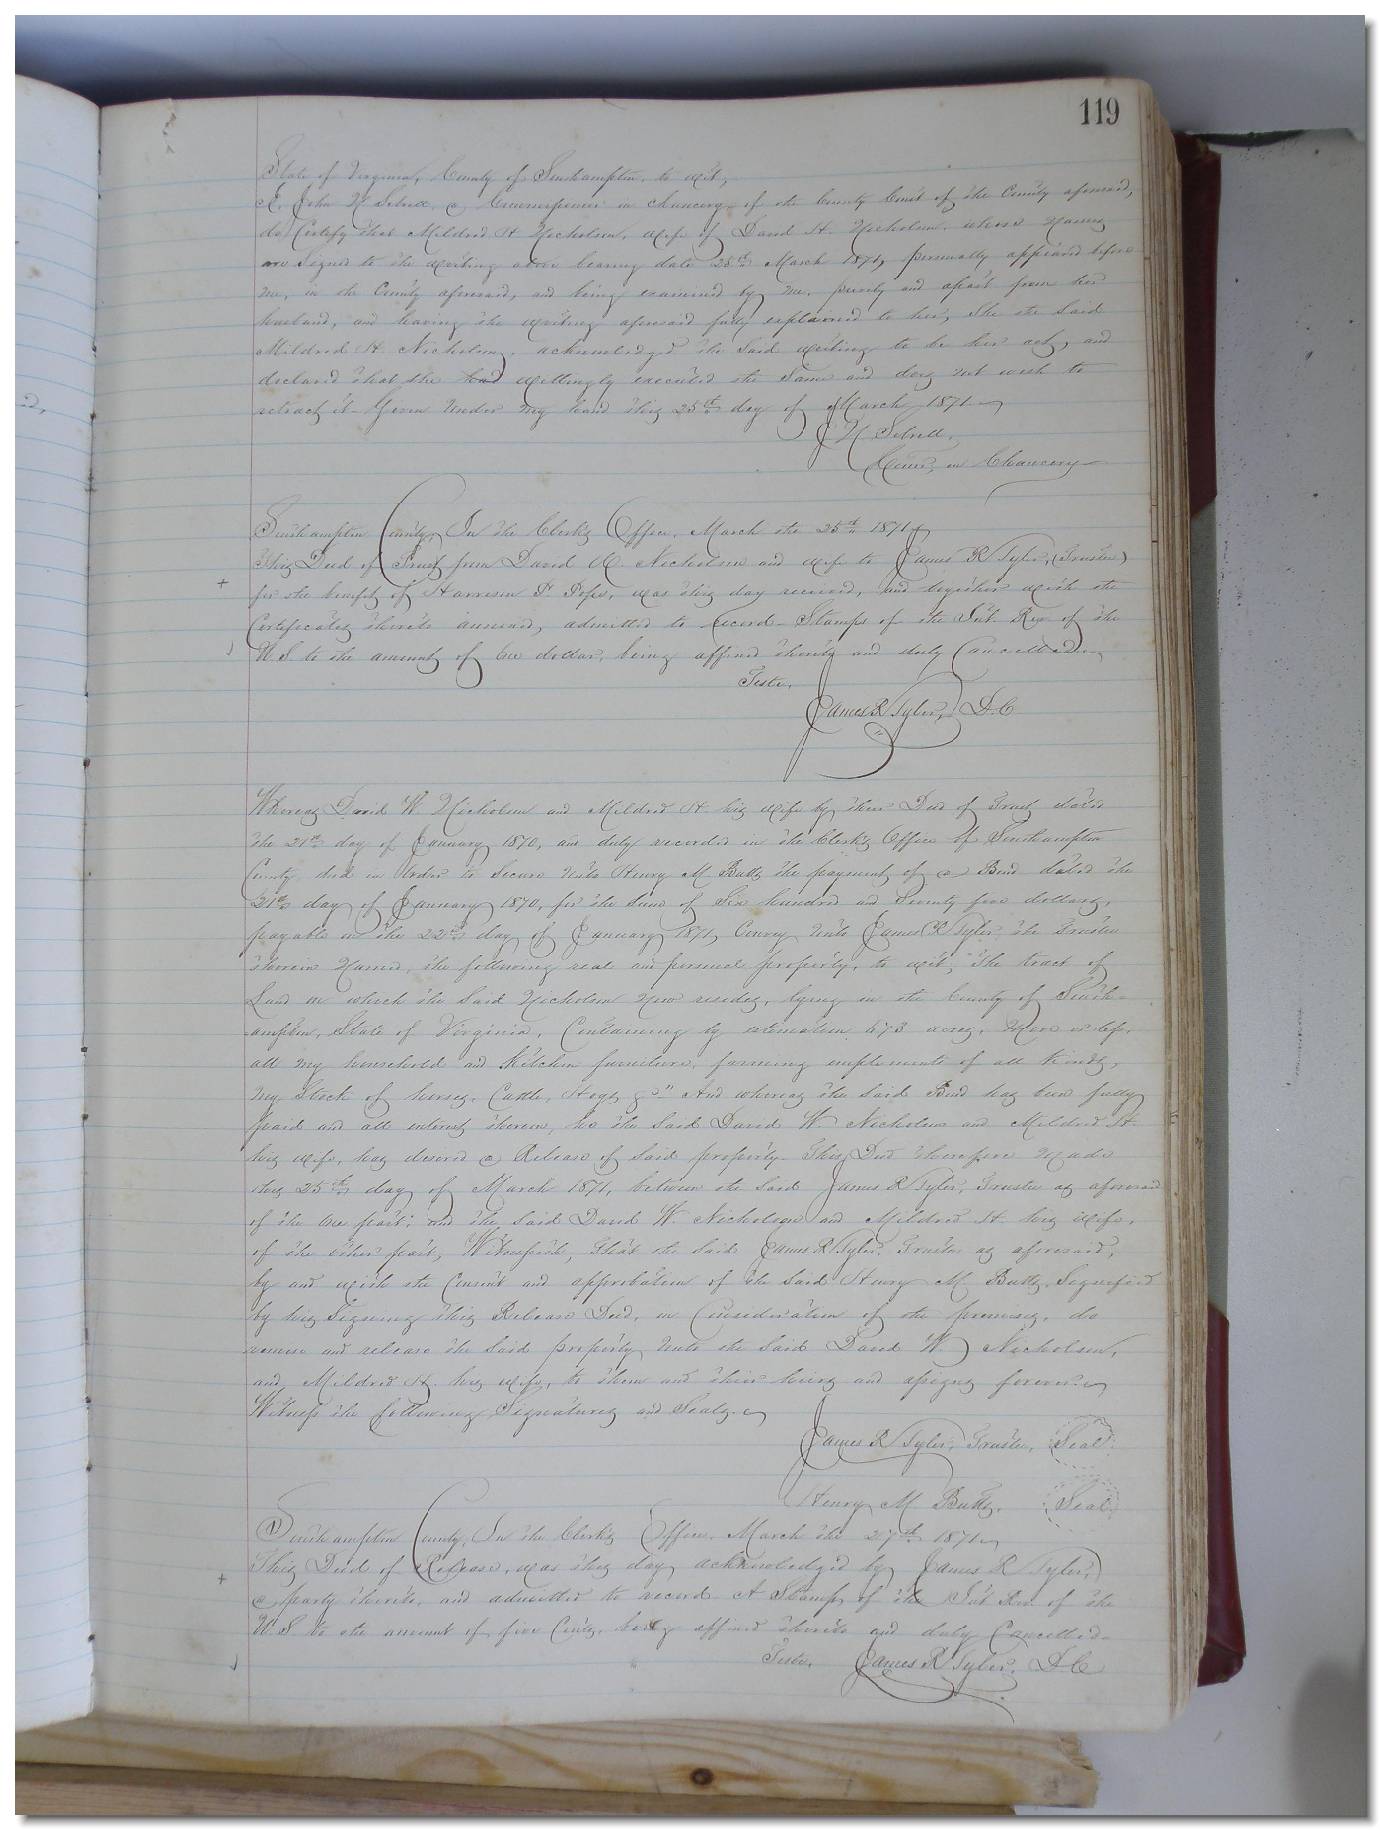 119
State of Virginia, County of Southampton, to wit;
I, John N Sebrell, a Commissioner in chancery of the County Court of the County aforesaid,
do Certify that Mildred H Nicholson, wife of David H. Nicholson, whose names
are signed to the writing above bearing date 25th March 1871, personally appeared before
me, in the County aforesaid, and being examined by me, privily and apart from her
husband, and having the writing aforesaid fully explained to her, She the said
Mildred H. Nicholson, acknowledged the said writing to be her act, and
declared that she had willingly executed the same and does not wish to
retract it - Given under my hand this 25th day of March 1871
J N Sebrell,
Comr, in Chancery
Southampton County, In the Clerk's Office, March the 25th 1871
This Deed of Trust from David W. Nicholson and wife to James R Tyler, (Trustee)
for the benefit of Harrison P. Pope, was this day received, and together with the
Certificates thereto annexed, admitted to record - Stamps of the Int. Rev. of the
U. S to the amount of One dollar, being affixed thereto and duly Cancelled
Teste,
James R Tyler, D. C
Whereas David W Nicholson and Mildred H. his wife by their Deed of Trust dated
the 21st day of January 1870, and duly recorded in the Clerk's Office of Southampton
County, did in order to secure unto Henry M Butts the payment of a Bond dated the
21st day of January 1870, for the sum of Six hundred and Seventy five dollars,
payable on the 22nd day of January 1871, Convey unto James R Tyler, the Trustee
therein named, the following real and personal property, to wit; "The tract of
Land on which the said Nicholson now resides, lying in the County of South-
ampton, State of Virginia, Containing by estimation 573 acres, More or less,
all my household and Kitchen furniture, farming implements of all kinds,
my Stock of horses, Cattle, Hogs &c" And whereas the said Bond has been fully
paid and all interest thereon, he the said David W. Nicholson and Mildred H.
his wife, has desired a Release of said property. This Deed therefore Made
this 25th day of March 1871, between the said James R Tyler, Trustee as aforesaid
of the one part; and the said David W. Nicholson and Mildred H. his wife,
of the other part, Witnesseth, That the said James R Tyler, Trustee as aforesaid,
by and with the Consent and approbation of the said Henry M Butts, Signified
by his Signing this Release Deed, in Consideration of the premises, do
remise and release the said property unto the said David W. Nicholson,
and Mildred H. his wife, to them and their heirs and assigns forever.
Witness the following Signatures and Seals.
James R Tyler, Trustee, Seal
Henry M Butts. Seal
Southampton County, In the Clerk's Office, March the 27th 1871
This Deed of Release, was this day acknowledged by James R Tyler,
a party thereto, and admitted to record. A Stamp of the Int Rev. of the
U. S to the amount of five Cents, being affixed thereto and duly Cancelled
Teste, James R Tyler, D. C